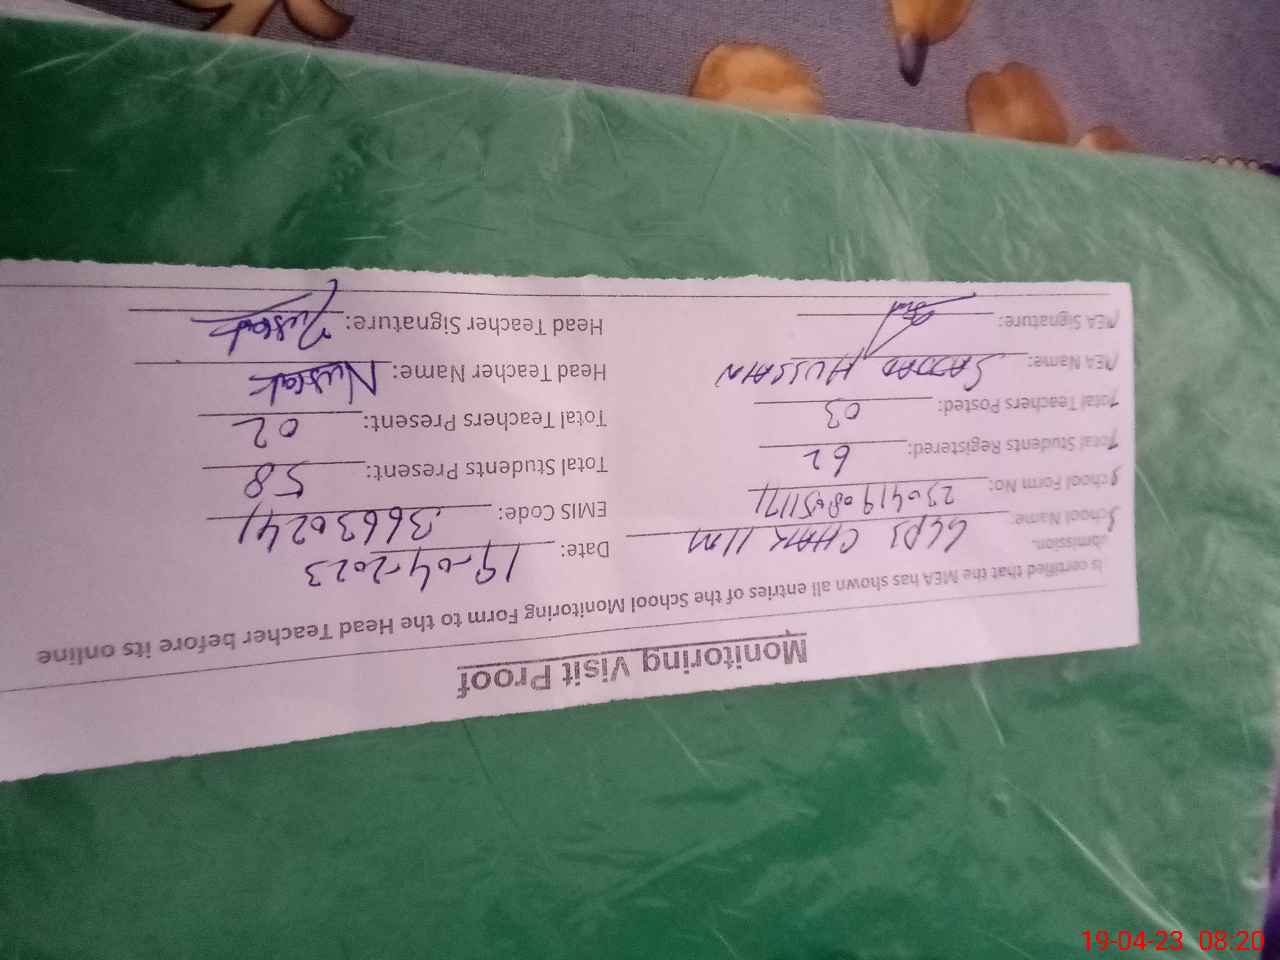 Monitoring Visit Proof
is certified that the MEA has shown all entries of the School Monitoring Form to the Head Teacher before its online
bmission.
School Name: GGPS CHAK 11M Date: 19-04-2023
School Form No: EMIS Code: 36630241
Total Students Registered: 62 Total Students Present: 58
Total Teachers Posted: 03 Total Teachers Present: 02
MEA Name: SAJJAD HUSSAIN Head Teacher Name: Nusrat
MEA Signature: Head Teacher Signature: Nusrat
19-04-23 08:20